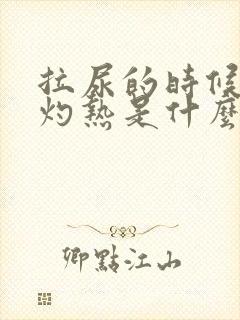 拉尿的時候
灼熱是什麼
卿點江山